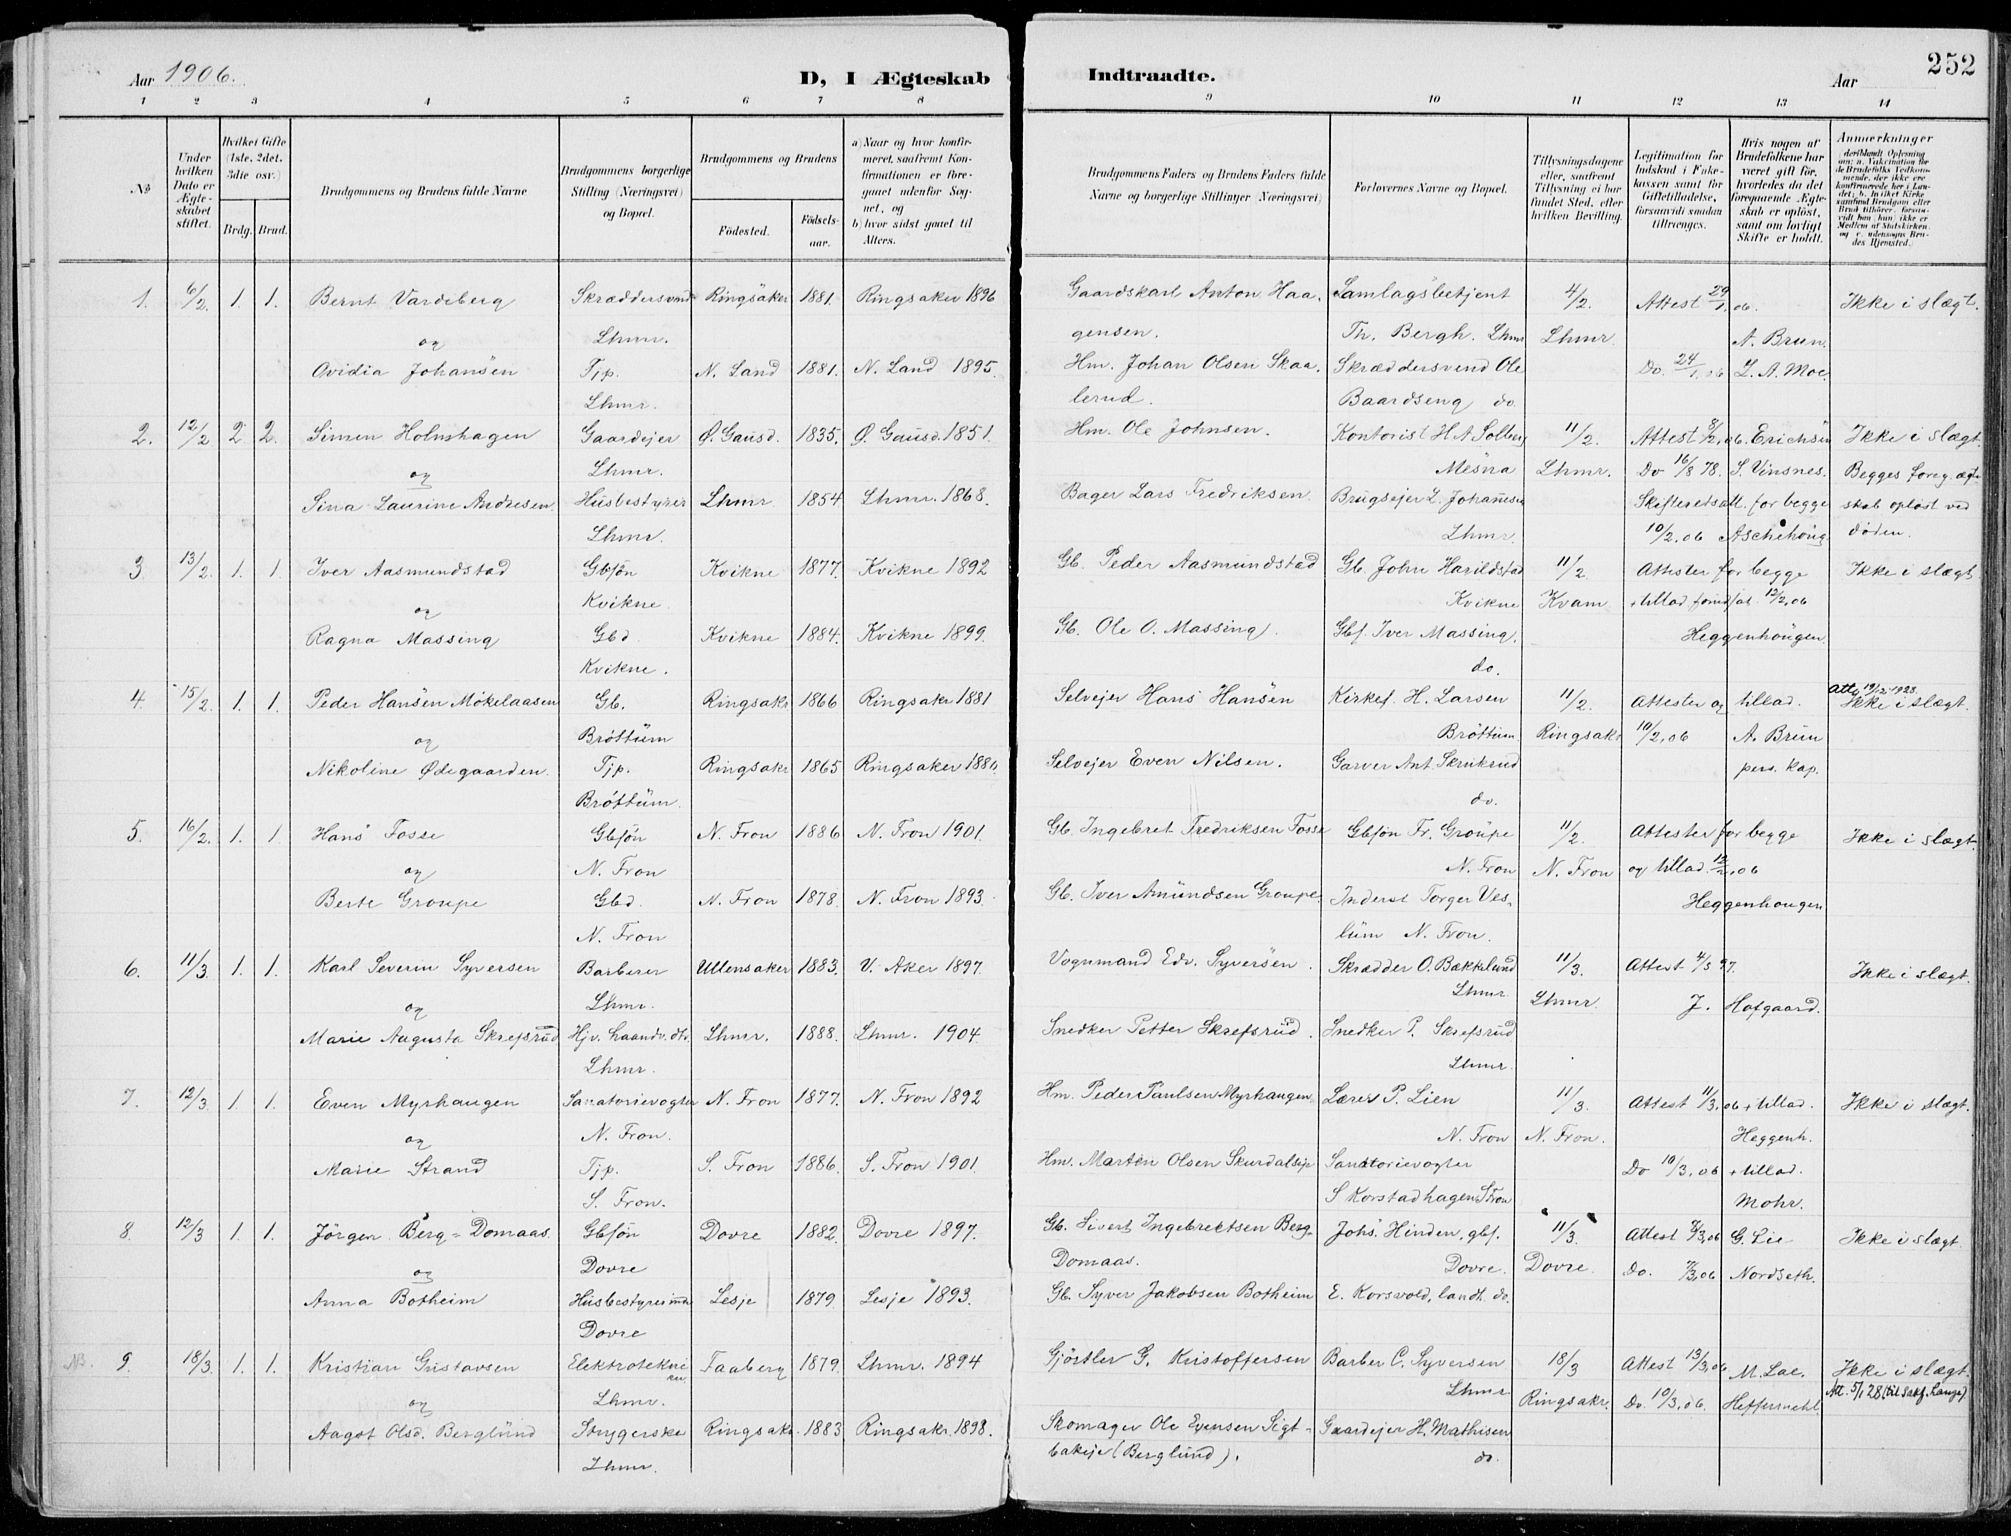 Aar 1906.
D, I Ægteskab
Indtraadte.
Aar
252
1 2 3 4 5 6 7 8 9 10 11 12 13 14
No
Under hvilken Dato er Ægteskabet stiftet.
Hvilket Gifte (1ste, 2det, 3die osv.)
Brdg. Brud.
Brudgommens og Brudens fulde Navne
Brudgommens borgerlige Stilling (Næringsvei) og Bopæl.
Brudgommens og Brudens
Födested.
Födselsaar.
a) Naar og hvor konfirmeret, saafremt Konfirmationen er foregaaet udenfor Sognet, og
b) hvor sidst gaaet til Alters.
Brudgommens Faders og Brudens Faders fulde Navne og borgerlige Stillinger (Næringsvei)
Forlovernes Navne og Bopæl.
Tillysningsdagene eller, saafremt Tillysning ei har fundet Sted, efter hvilken Bevilling.
Legitimation for Indskud i Enkekassen samt for Giftetilladelse, forsaavidt saadan tiltrænges.
Hvis nogen af Brudefolkene har været gift för, hvorledes da det foregaaende Ægteskab er oplöst, samt om lovligt Skifte er holdt.
Anmerkninger
1. 6/2. 1. 1. Bernt Vardeberg Skræddersvend Ringsaker 1881. Ringsaker 1896 Gaardskarl Anton Haa- Samlagsbetjent 4/2. Attest 29/1, 06. Ikke i slægt.
og Lhmr. gensen. Th. Bergh. Lhmr Lhmr A. Brun.
Ovidia Johansen Tjp. N. Land 1881. N. Land 1895. Hm. Johan Olsen Skaa- Skræddersvend Ole Do. 24/1, 06 L. A. Moe.
Lhmr. lerud. Baardseng do.
2. 12/2 2 2. Simen Holmshagen Gaardejer Ø. Gausd. 1835. Ø. Gausd. 1851. Hm. Ole Johnsen. Kontorist H. A. Solberg 11/2. Attest 8/2, 06. Erichsen Ikke i slægt.
og Lhmr. Mesna Lhmr. Do 16/8 78. S. Vinsnes. Begges foreg. ægte-
Sina Laurine Andresen Husbestyrer Lhmr 1854 Lhmr. 1868. Bager Lars Fredriksen Brugsejer L. Johannesen Skifteretsatt. for begge skab opløst ved
Lhmr. Lhmr. 10/2. 06 Aschehoug døden.
3 13/2. 1. 1. Iver Aasmundstad Gbsön Kvikne 1877. Kvikne 1892 Gb. Peder Aasmundstad Gb. John Harildstad 11/2 Attester for begge Ikke i slægt
og Kvikne. Kvikne Kvam + tillad 12/2, 06
Ragna Massing Gbd Kvikne 1884. Kvikne 1899. Gb. Ole O. Massing. Gbf. Iver Massing. Heggenhougen.
Kvikne. do.
Att. 19/2 1923.
4. 15/2. 1. 1. Peder Hansen Mökelaasen Gb. Ringsakr 1866 Ringsakr 1881 Selvejer Hans Hansen Kirkes. H. Larsen 11/2. Attester og tillad. Ikke i slægt.
og Bröttum Bröttum Ringsakr 10/2, 06 A. Brun
Nikoline Ødegaarden. Tjp. Ringsakr 1865 Ringsaker 1880. Selvejer Even Nilsen. Garver Ant. Skrukrud pers. kap.
Bröttum. do.
5. 16/2. 1. 1 Hans Fosse Gbsön N. Fron 1886 N. Fron 1901. Gb. Ingebret Fredriksen Fosse Gbsön Fr. Groupe 11/2. Attester for begge Ikke i slægt.
og N. Fron N. Fron N. Fron og tillad. 12/2, 06
Berte Groupe Gbd. N. Fron 1878. N. Fron 1893. Gb. Iver Amundsen Groupe. Inderst Torger Ves- Heggenhougen
N. Fron lüm N. Fron.
6. 11/3 1. 1. Karl Severin Syversen Barberer Ullensaker 1883. V. Aker 1897. Vognmand Edv. Syversen. Skrædder O. Bækkelund 11/3. Attest 4/5 97. Ikke i slægt.
og Lhmr. Lhmr. Lhmr. J. Hofgaard.
Marie Augusta Skrefsrud Hjv. haandv. dtr. Lhmr. 1888. Lhmr. 1904. Snedker Petter Skrefsrud. Snedker P. Skrefsrud
Lhmr. Lhmr.
7. 12/3. 1. 1. Even Myrhaugen Sanatorievogter N. Fron 1877. N. Fron 1892 Hm. Peder Paulsen Myrhaugen Lærer P. Lien 11/3. Attest 11/3, 06 + tillad. Ikke i slægt.
og N. Fron. N. Fron N. Fron. Heggenh.
Marie Strand Tjp. S. Fron 1886. S. Fron 1901. Hm. Marten Olsen Sanatorievogter Do 10/3, 06 + tillad.
S. Fron. S Korstadhagen S. Fron Mohr.
8. 12/3 1. 1. Jörgen Berg-Domaas. Gbsön Dovre 1882. Dovre 1897. Gb. Sivert Ingebrektsen Berg- Johs. Hinden, gbf. 11/3. Attest 8/3, 06 G. Lie Ikke i slægt
og Dovre Domaas. Dovre. Dovre. Do. 7/3, 06 Nordseth.
Anna Botheim Husbestyrerinde Lesje 1879 Lesje 1893. Gb. Syver Jakobsen Botheim E. Korsvold, landh. do.
Dovre
NB. 9. 18/3. 1. 1. Kristian Gustavsen Elektrotekniker Faaberg 1879. Lhmr. 1894 Gjörtler G. Kristoffersen Barber C. Syversen 18/3 Attest 13/3, 06. M. Lae. Ikke i slægt.
og Lhmr. Lhmr Ringsakr. Do. 10/3, 06. Att. 5/1 28.
Aagot Olsd. Berglund Strygerske Ringsakr 1883 Ringsakr. 1898. Skomager Ole Evensen Sigt- Gaardejer H. Mathisen
Lhmr. bakeje (Berglund). do.